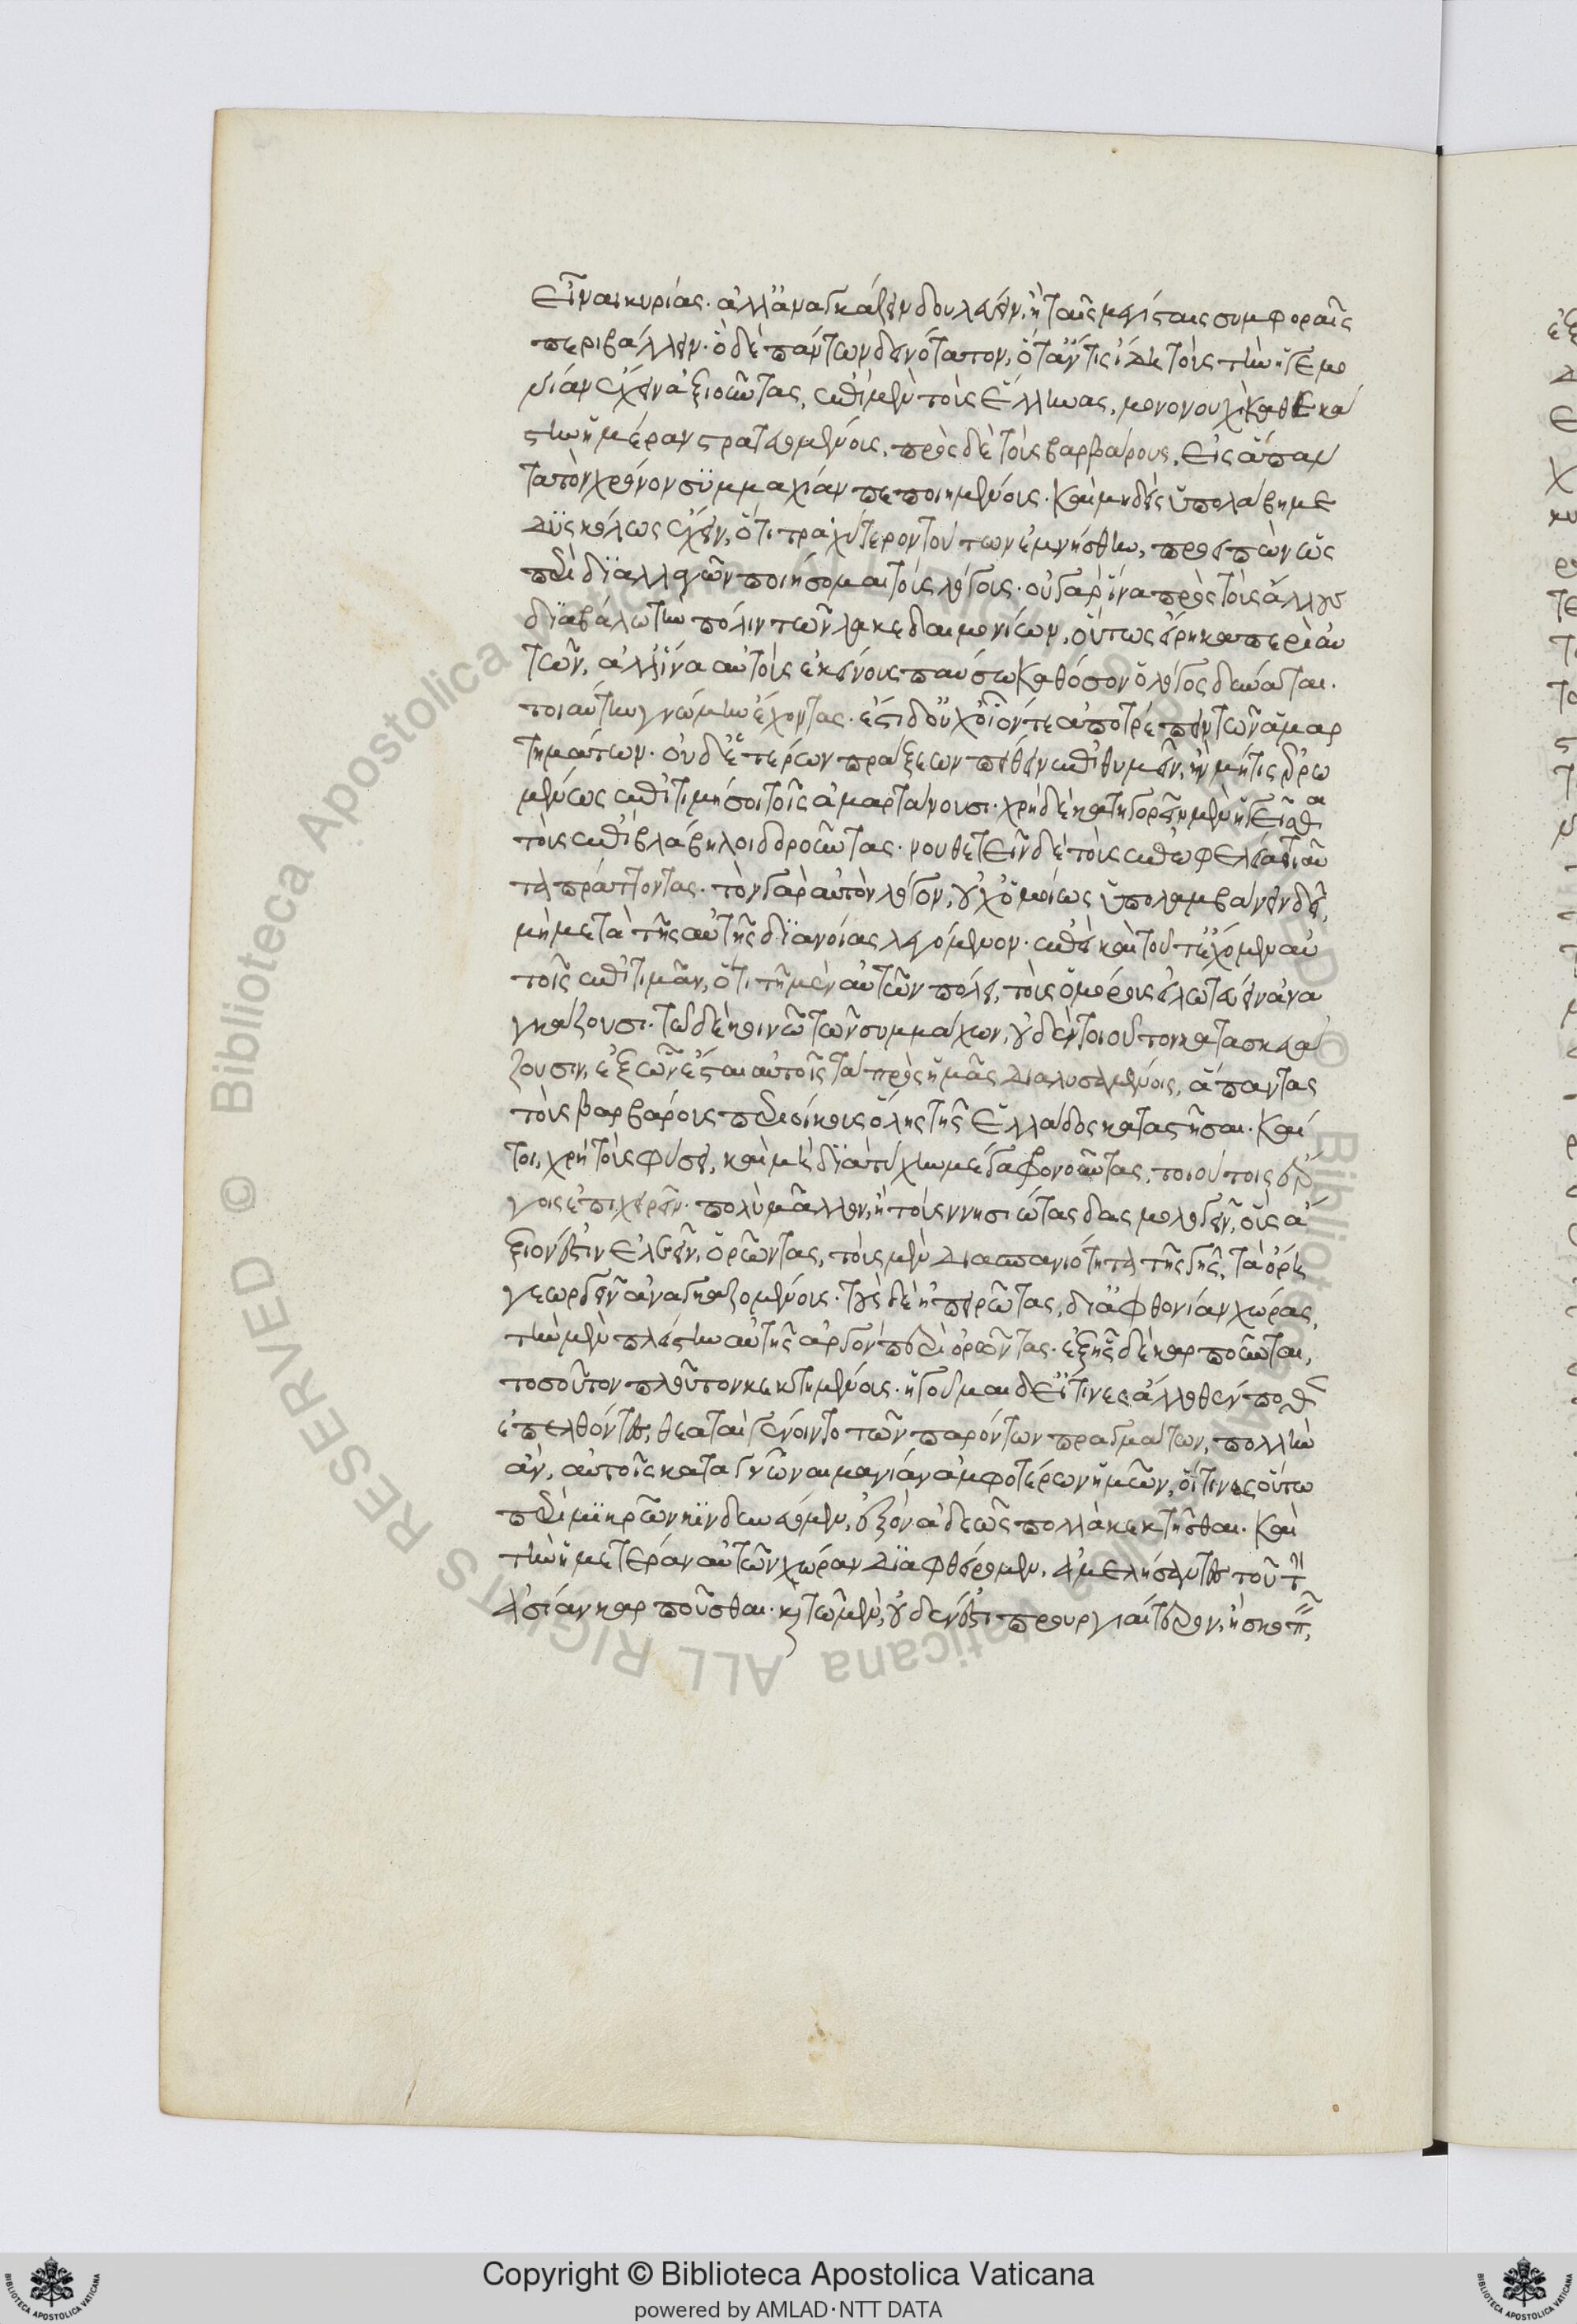 εἶναι κυρίας· ἀλλ' ἀναγκάζειν δουλεύειν, ἢ ταῖς μεγίσταις συμφοραῖς
περιβάλλειν· ὃ δὲ πάντων δεινότατον, ὅταν τις ἴδῃ τοὺς τὴν ἡγεμο
νίαν ἔχειν ἀξιοῦντας, ἐπὶ μὲν τοὺς ἕλληνας, μονονουχὶ καθ' ἑκά
στην ἡμέραν στρατευομένους, πρὸς δὲ τοὺς βαρβάρους, εἰς ἅπαν
τα τὸν χρόνον συμμαχίαν πεποιημένους. καὶ μηδεὶς ὑπολάβῃ με
δυσκόλως ἔχειν, ὅτι τραχύτερον τούτων ἐμνήσθην, προειπὼν ὡς
περὶ διαλλαγῶν ποιήσομαι τοὺς λόγους· οὐ γὰρ ἵνα πρὸς τοὺς ἄλλους
διαβάλω τὴν πόλιν τῶν λακεδαιμονίων, οὕτως εἴρηκα περὶ αὐ
τῶν, ἀλλ' ἵνα αὐτοὺς ἐκείνους παύσω καθόσον ὁ λόγος δύναται.
τοιαύτην γνώμην ἔχοντας. ἔστι δ' οὐχ οἷόν τε ἀποτρέπειν τῶν ἁμαρ
τημάτων· οὐδ' ἑτέρων πράξεων πείθειν ἐπιθυμεῖν, ἢν μή τις ἐρρω
μένως ἐπιτιμήσοι τοῖς ἁμαρτάνουσι· χρὴ δὲ κατηγορεῖν μὲν ἡγεῖσθαι
τοὺς ἐπὶ βλάβῃ λοιδοροῦντας· νουθετεῖν δὲ τοὺς ἐπ' ὠφελείᾳ τοιαῦ
τα πράττοντας· τὸν γὰρ αὐτὸν λόγον, οὐχ ὁμοίως ὑπολαμβάνειν δεῖ,
μὴ μετὰ τῆς αὐτῆς διανοίας λεγόμενον· ἐπεὶ καὶ τοῦτ' ἔχομεν αὐ
τοῖς ἐπιτιμᾶν, ὅτι τῇ μὲν αὑτῶν πόλει, τοὺς ὁμόρους εἱλωτεύειν ἀνα
γκάζουσι· τῷ δὲ κοινῷ τῶν συμμάχων, οὐδὲν τοιοῦτον κατασκευά
ζουσιν, ἐξ ὧν ἔσται αὐτοῖς τὰ πρὸς ἡμᾶς διαλυσαμένοις, ἅπαντας
τοὺς βαρβάρους περιοίκους ὅλης τῆς ἑλλάδος καταστῆσαι. καί
τοι, χρὴ τοὺς φύσει, καὶ μὴ διὰ τύχην μέγα φρονοῦντας, τοιούτοις ἔρ
γοις ἐπιχειρεῖν· πολὺ μᾶλλον, ἢ τοὺς νησιώτας δασμολογεῖν, οὓς ἄ
ξιόν ἐστιν ἐλεεῖν, ὁρῶντας, τοὺς μὲν διὰ σπανιότητα τῆς γῆς, τὰ ὄρη
γεωργεῖν ἀναγκαζομένους· τοὺς δὲ ἠπειρώτας, δι' ἀφθονίαν χώρας,
τὴν μὲν πλείστην αὐτῆς ἀργὸν περιορῶντας· ἐξ ἧς δὲ καρποῦνται,
τοσοῦτον πλοῦτον κεκτημένους. ἡγοῦμαι δ' εἴ τινες ἄλλοθεν ποθεν
ἐπελθόντες, θεαταὶ γένοιντο τῶν παρόντων πραγμάτων, πολλὴν
ἂν, αὐτοῖς καταγνῶναι μανίαν ἀμφοτέρων ἡμῶν, οἵτινες οὕτω
περὶ μικρῶν κινδυνεύομεν, ἐξὸν ἀδεῶς πολλὰ κεκτῆσθαι. καὶ
τὴν ἡμετέραν αὐτῶν χώραν διαφθείρομεν, ἀμελήσαντες τοῦ τὴν
ἀσίαν καρποῦσθαι. καὶ τῷ μὲν, οὐδέν ἐστι προυργιαίτερον, ἢ σκοπεῖν,